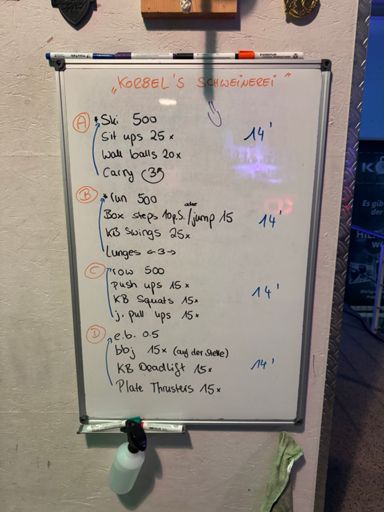 „KORBEL'S SCHWEINEREI"
A Ski 500
Sit ups 25x
Wall balls 20x
Carry 3
14'
B * run 500
Box steps 10p.S. / oder jump 15
KB Swings 25x
Lunges ←3→
14'
C row 500
push ups 15x
KB Squats 15x
j. pull ups 15x
14'
D e.b. 0.5
bbj 15x (auf der Stelle)
KB Deadlift 15x
Plate Thrusters 15x
14'